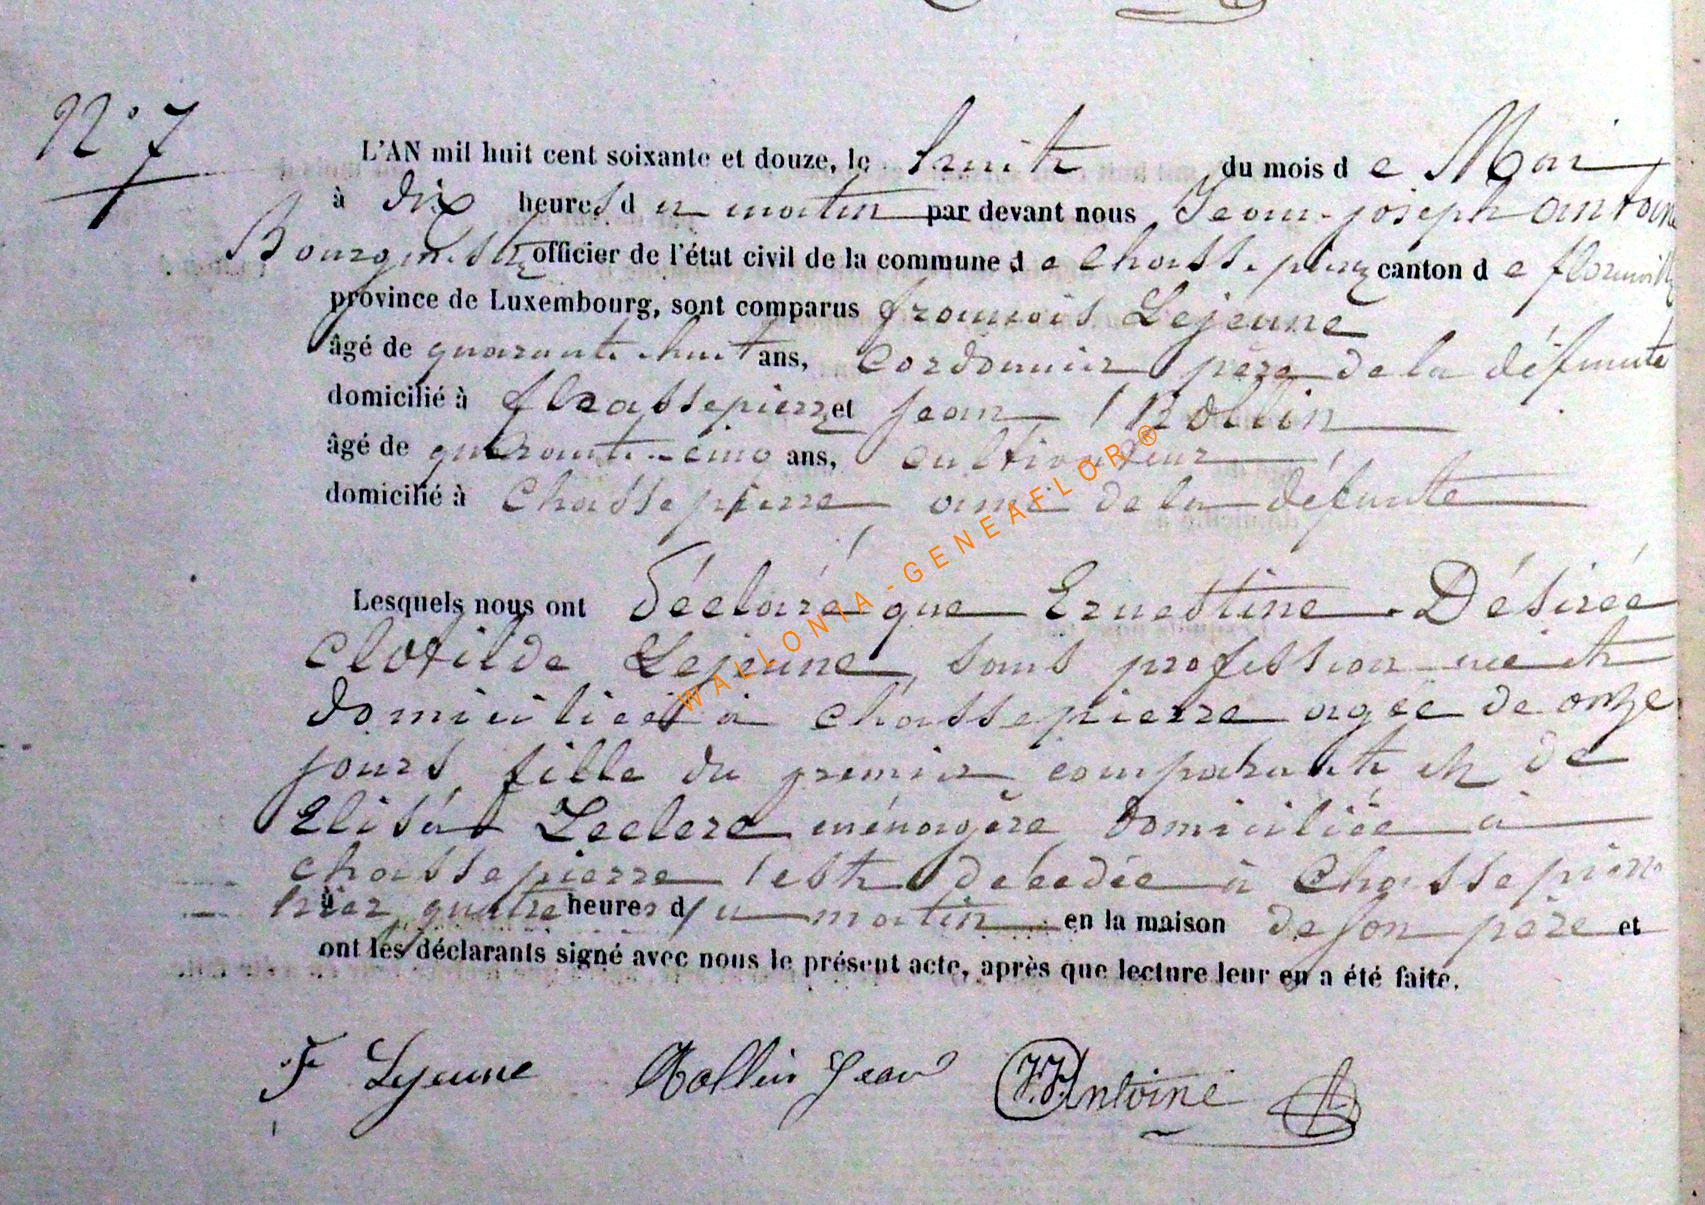 N° 7
L'AN mil huit cent soixante et douze, le huit du mois de Mai
à dix heures du matin par devant nous Jean-joseph antoine
Bourgmestre officier de l'état civil de la commune de Chassepierre canton de florenville
province de Luxembourg, sont comparus françois Lejeune
âgé de quarante-huit ans, cordonnier père de la défunte
domicilié à Chassepierre et jean Rollin
âgé de quarante-cinq ans, cultivateur
domicilié à Chassepierre ami de la défunte
Lesquels nous ont déclaré que Ernestine Désirée
Clotilde Lejeune, sans profession née et
domiciliée à chassepierre agée de onze
jours, fille du premier comparant et de
Elisa Leclerc ménagère domiciliée à
chassepierre est décédée à Chassepierre
hier à quatre heures du matin en la maison de son père et
ont les déclarants signé avec nous le présent acte, après que lecture leur en a été faite.
F Lejeune Rollin Jean J.J. Antoine
WALLONIA-GENEAFLOR®